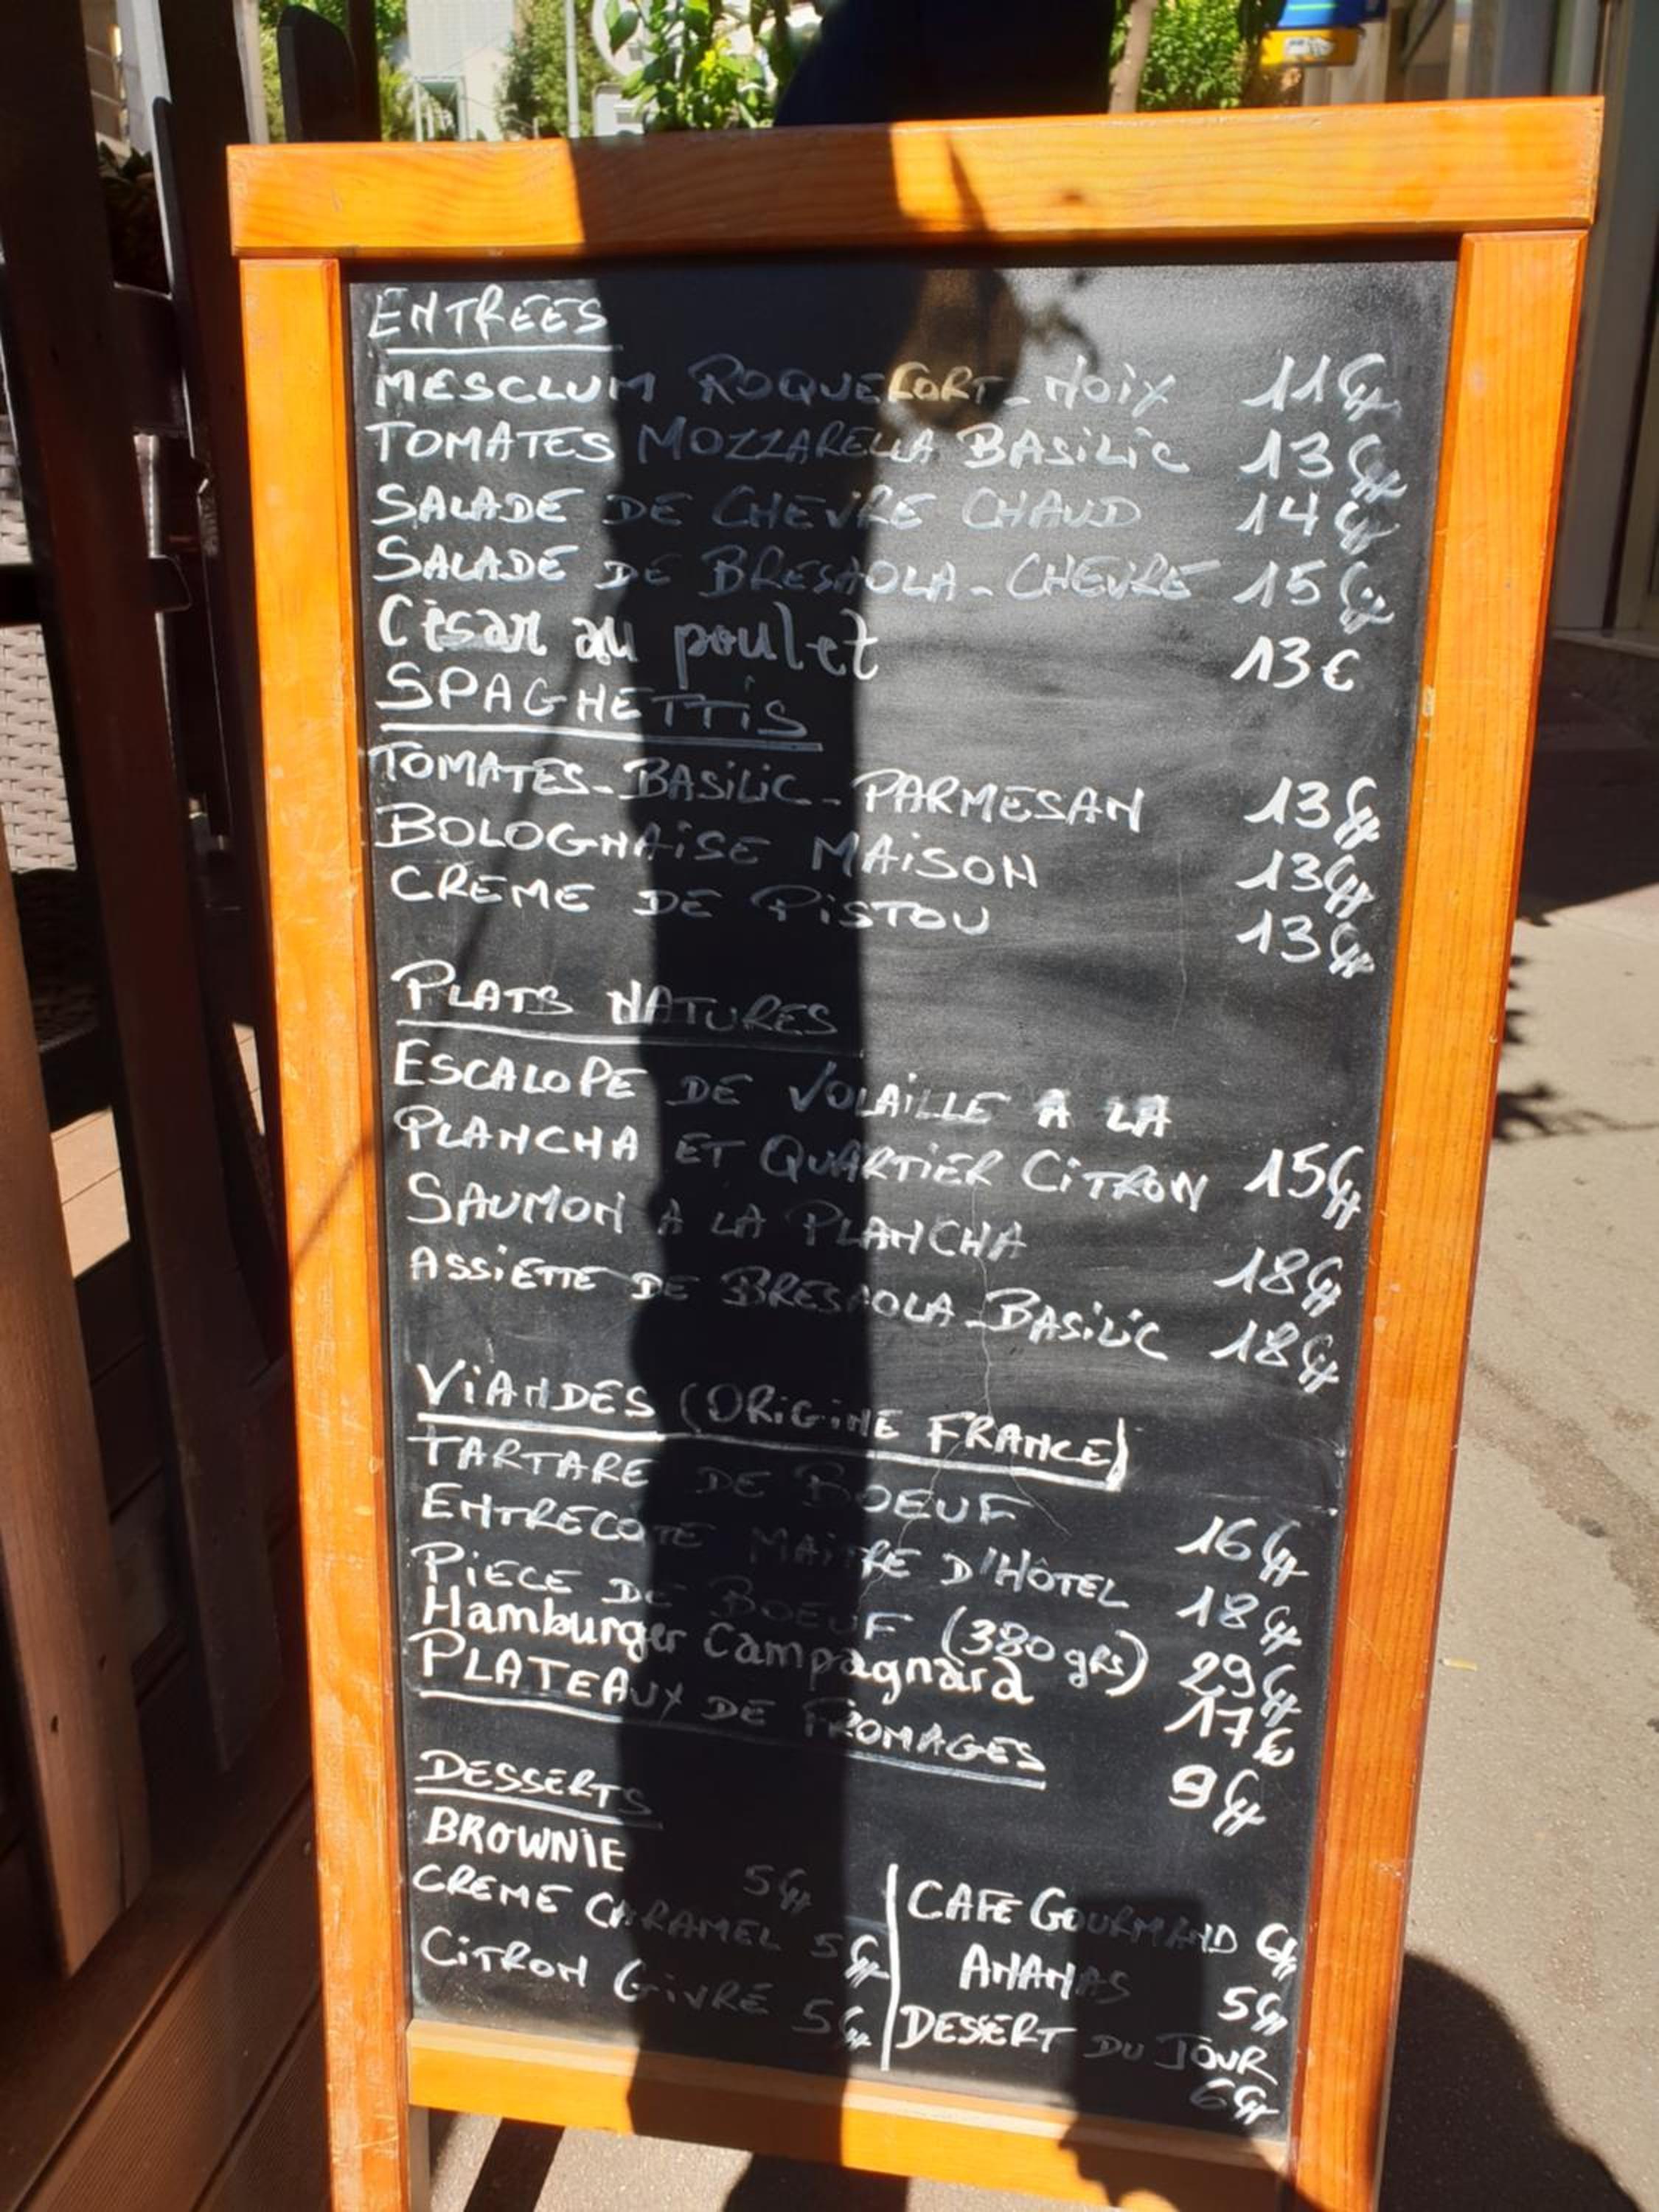 ENTREES
MESCLUM ROQUEFORT - NOIX 11€
TOMATES MOZZARELLA BASILIC 13€
SALADE DE CHEVRE CHAUD 14€
SALADE DE BRESAOLA - CHEVRE 15€
César au poulet 13€
SPAGHETTIS
TOMATES - BASILIC - PARMESAN 13€
BOLOGNAISE MAISON 13€
CREME DE PISTOU 13€
PLATS NATURES
ESCALOPE DE VOLAILLE A LA
PLANCHA ET QUARTIER CITRON 15€
SAUMON A LA PLANCHA 18€
ASSIETTE DE BRESAOLA - BASILIC 18€
VIANDES (ORIGINE FRANCE)
TARTARE DE BOEUF 16€
ENTRECOTE MAITRE D'HÔTEL 18€
PIECE DE BOEUF (380 grs) 29€
Hamburger Campagnard 17€
PLATEAUX DE FROMAGES 9€
DESSERTS
BROWNIE 5€
CREME CARAMEL 5€
CITRON GIVRÉ 5€
CAFE GOURMAND 6€
ANANAS 5€
DESSERT DU JOUR
6€